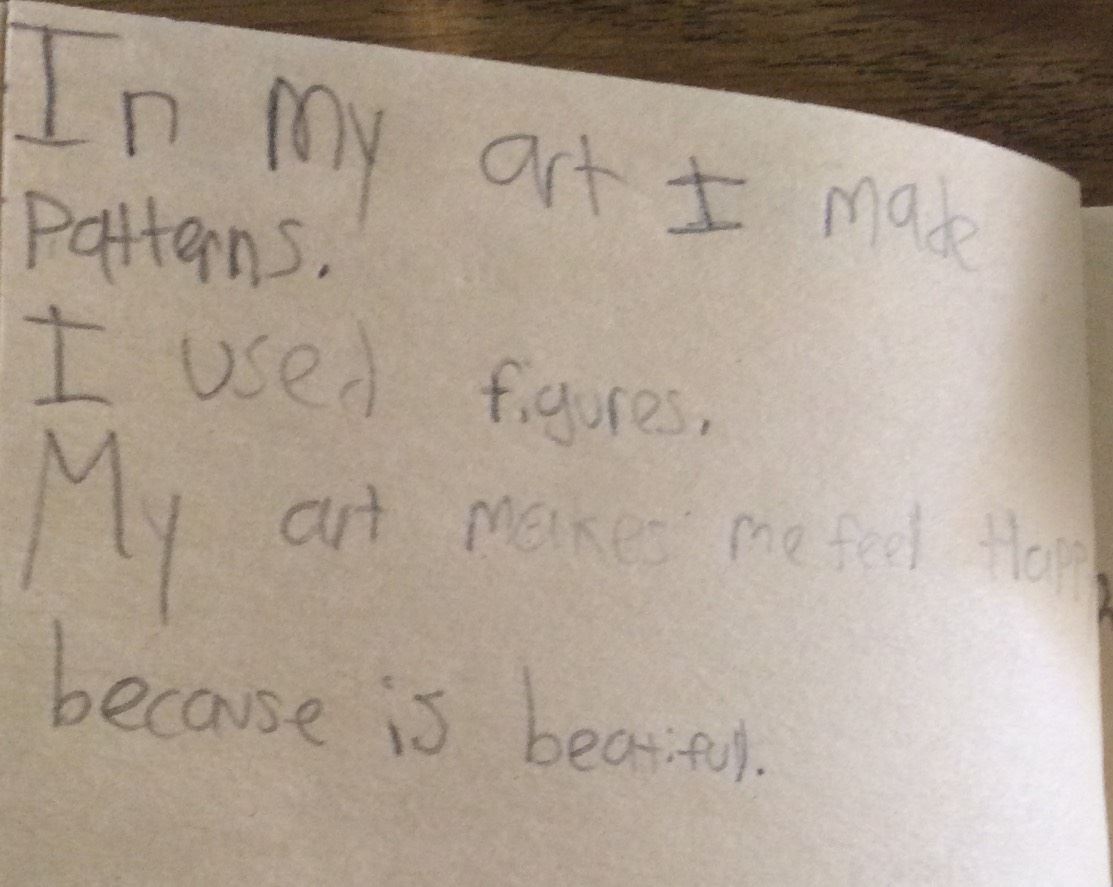 In My art I made
Patterns.
I used figures.
My art makes me feel Happy
because is beatiful.